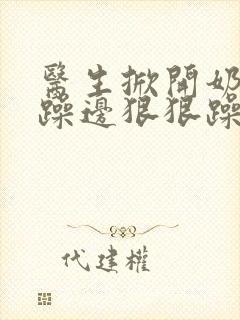 醫生掀開奶
躁邊狠狠躁
代建權